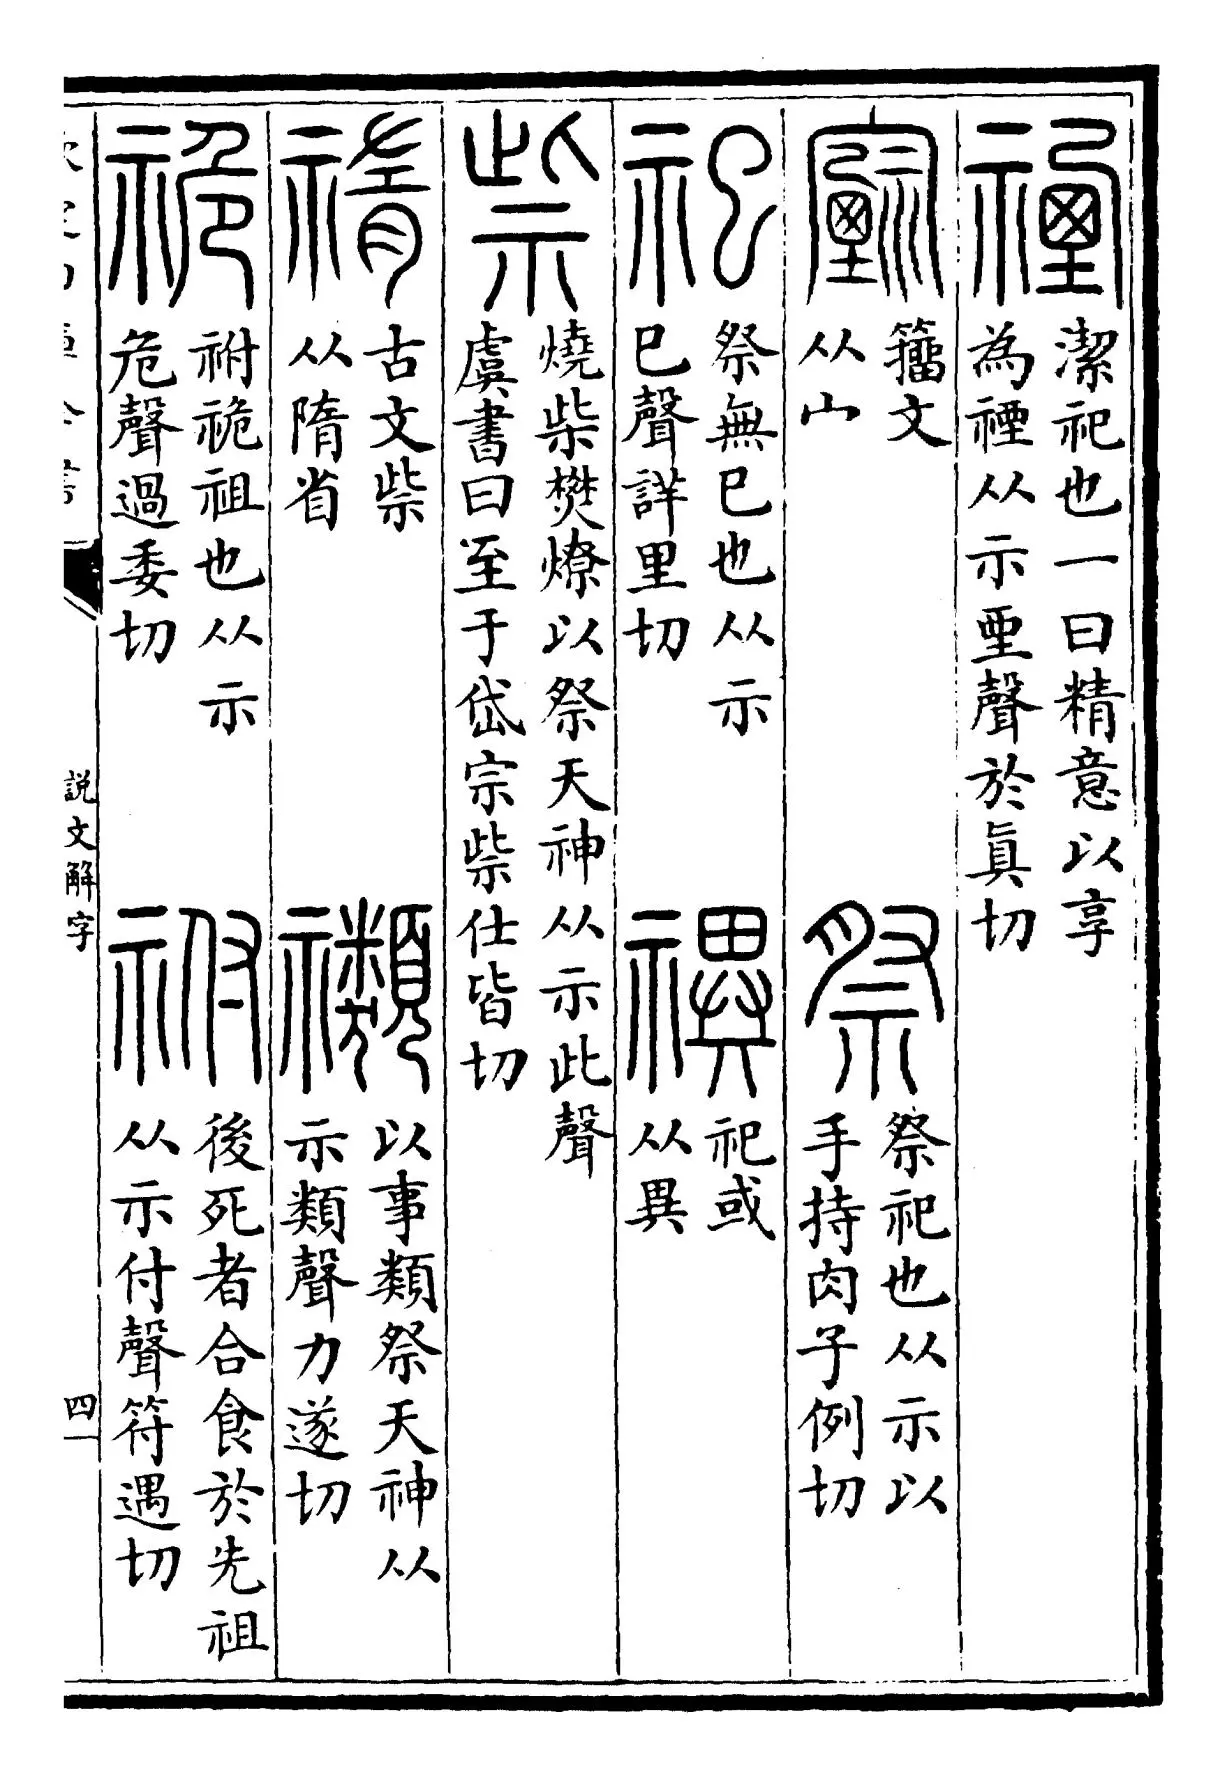 禋
潔祀也一曰精意以享
為禋从示垔聲於眞切
籒文
从宀
祭
祭祀也从示以
手持肉子例切
祀
祭無巳也从示
巳聲詳里切
禩
祀或
从異
祡
燒柴樊燎以祭天神从示此聲
虞書曰至于岱宗祡仕皆切
古文祡
从隋省
禷
以事類祭天神从
示類聲力遂切
祪
祔祪祖也从示
危聲過委切
祔
後死者合食於先祖
从示付聲符遇切
說文解字
四